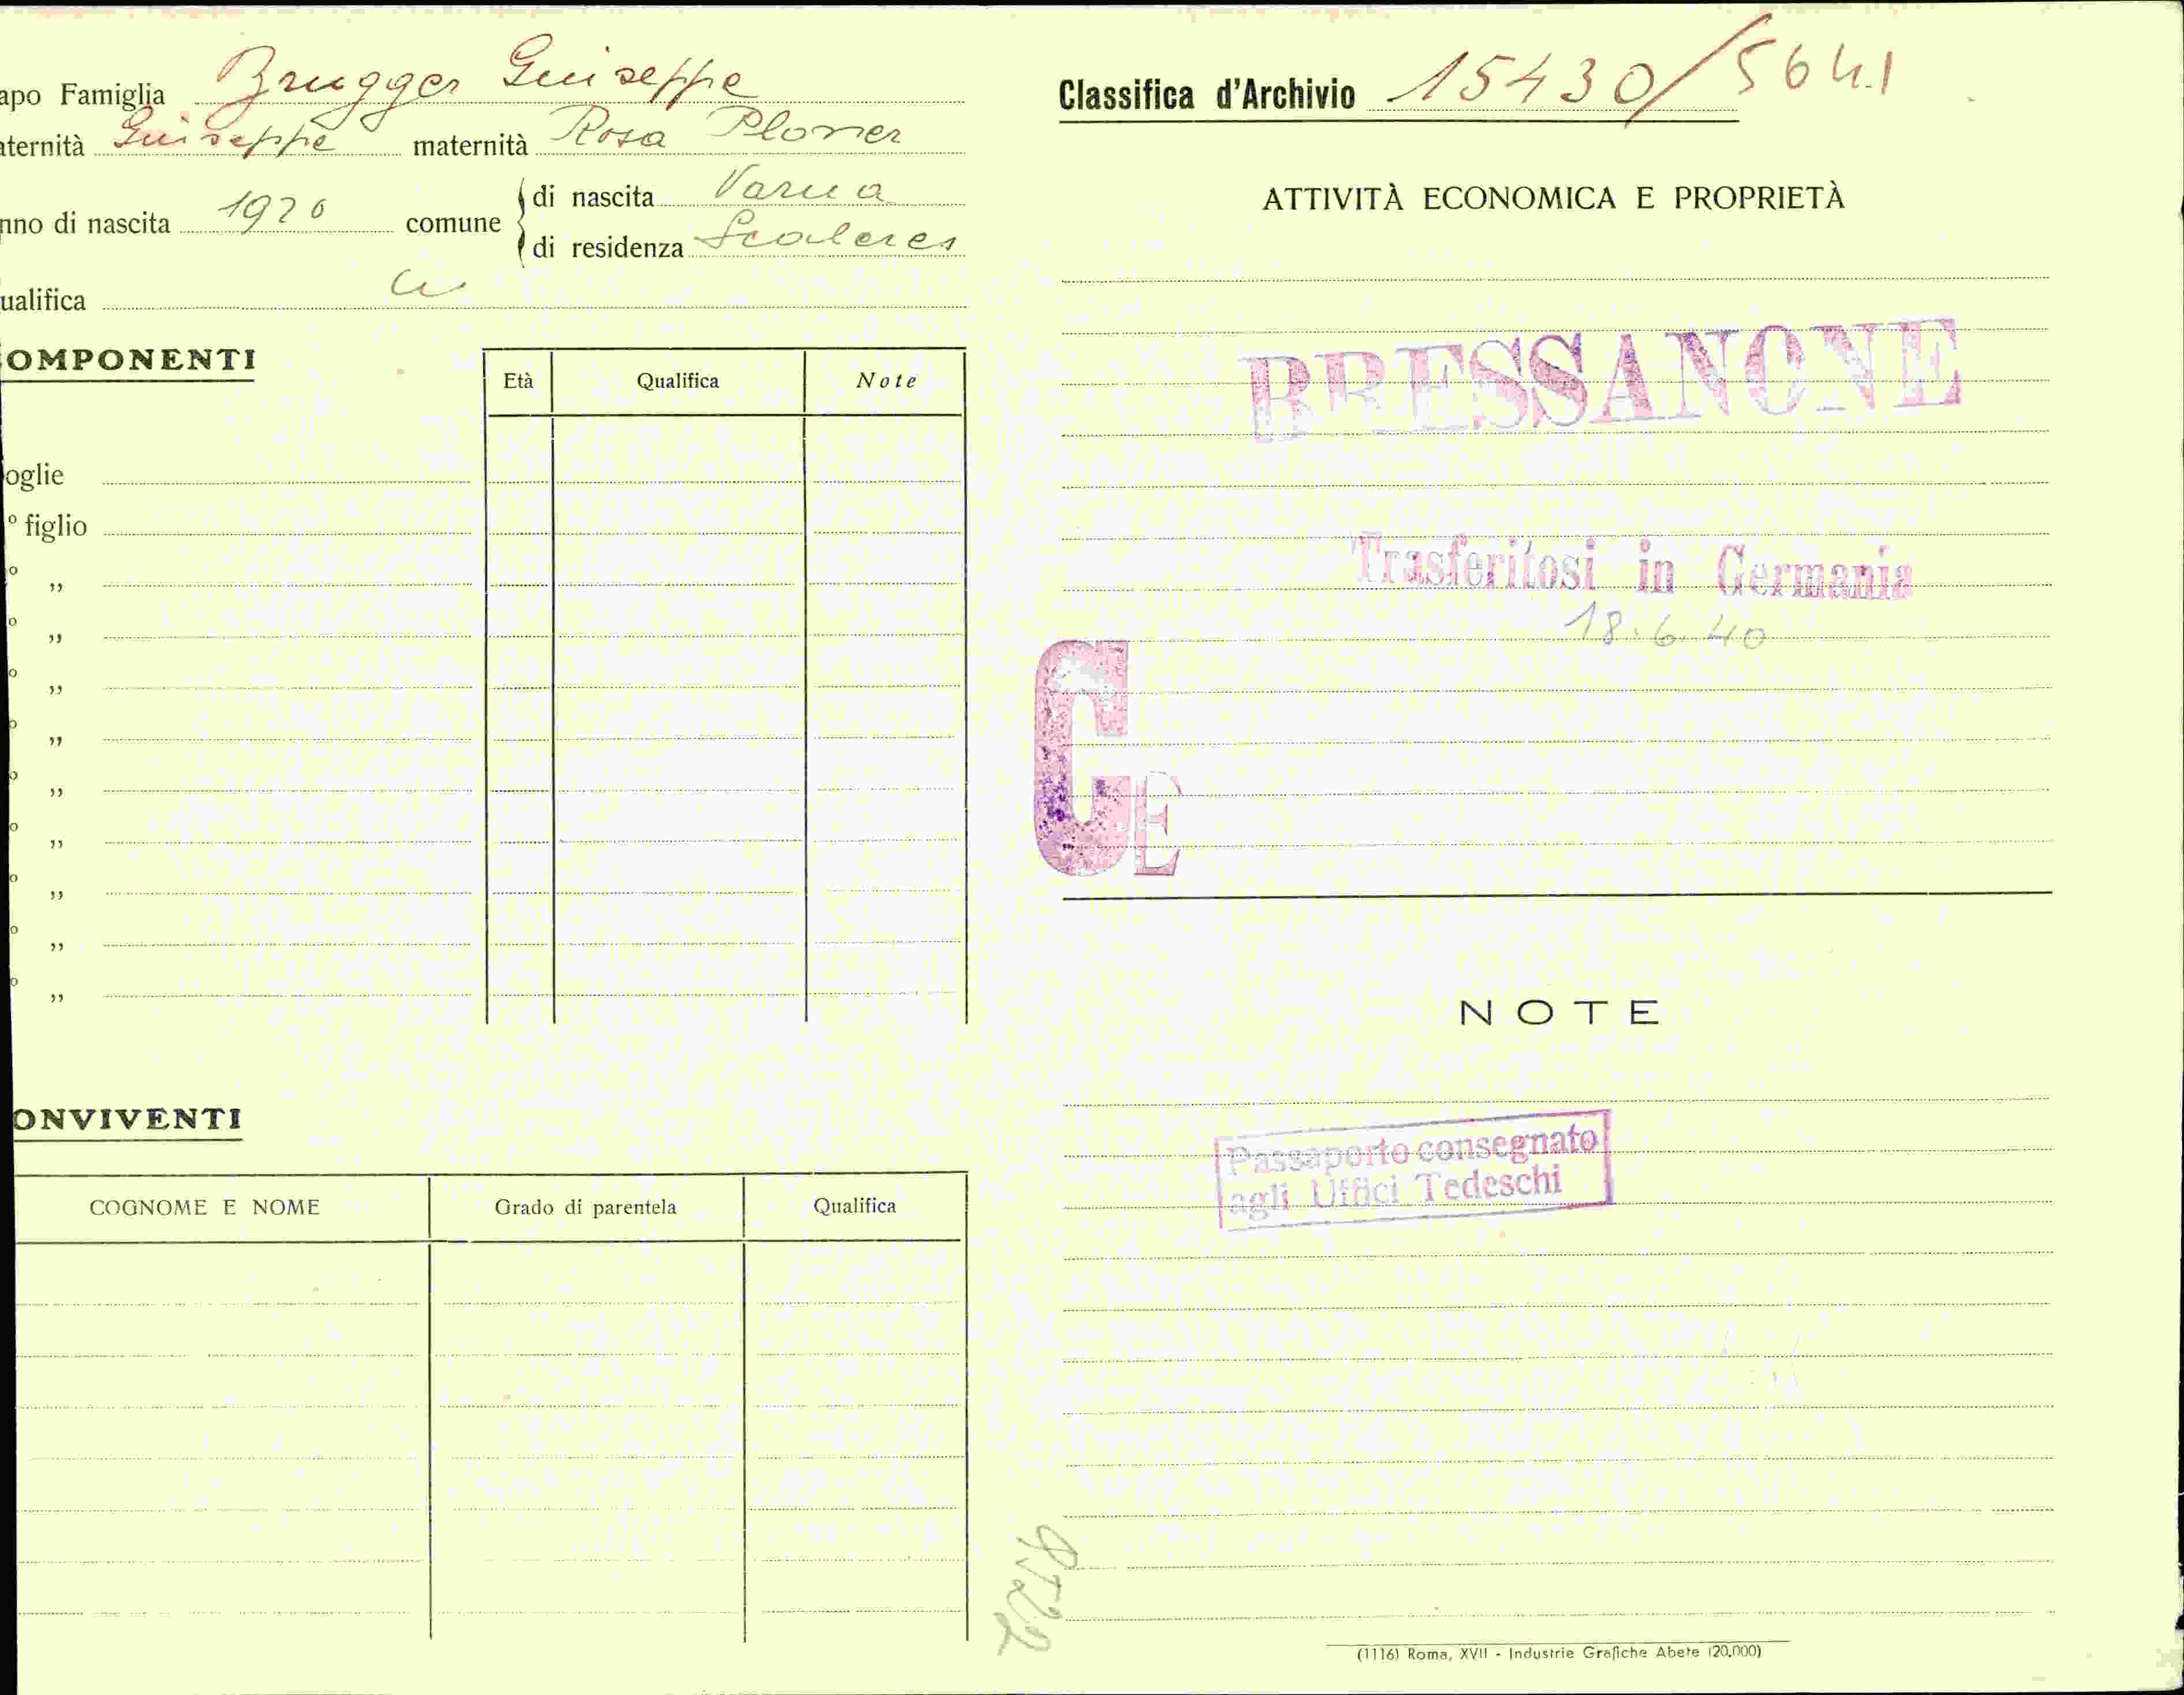 apo Famiglia Brugger Guiseppe
aternità Guiseppe maternità Rosa Ploner
nno di nascita 1920 comune di nascita Varna
di residenza Scaleres
ualifica
OMPONENTI
Età Qualifica Note
oglie
° figlio
° „
° „
° „
° „
° „
° „
° „
° „
° „
ONVIVENTI
COGNOME E NOME Grado di parentela Qualifica
Classifica d'Archivio 15430/5641
ATTIVITÀ ECONOMICA E PROPRIETÀ
BRESSANONE
Trasferitosi in Germania
18.6.40
GE
NOTE
Passaporto consegnato
agli Uffici Tedeschi
9722
(1116) Roma, XVII - Industrie Grafiche Abete (20.000)